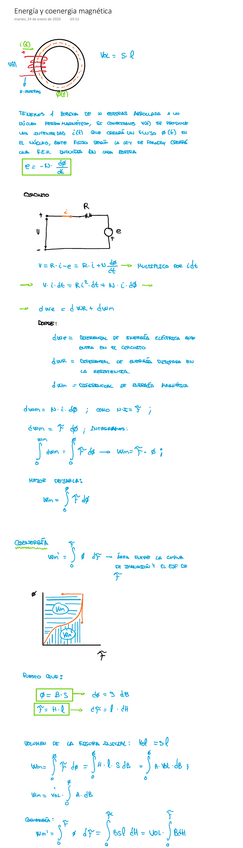 Energía y coenergia magnética
martes, 14 de enero de 2020
i(t)
V(t)
Vol = S·l
φ(t)
TENEMOS 1 BOBINA DE N ESPIRAS ARROLLADA A UN
NÚCLEO FERROMAGNÉTICO, SE CONECTAMOS V(t) SE PRODUCE
UNA INTENSIDAD i(t) QUE CREARÁ UN FLUJO φ(t) EN
EL NÚCLEO, ESTE FLUJO SEGÚN LA LEY DE FARADAY CREARÁ
UNA F.E.M. INDUCIDA EN CADA ESPIRA
e = -N· dφ/dt
CIRCUITO
R
i
V
e
V = R·i - e = R·i + N dφ/dt → MULTIPLICO POR idt
→ V·i·dt = Ri² dt + N·i·dφ →
→ dWe = dWR + dWm
DONDE:
dWe = DIFERENCIAL DE ENERGÍA ELÉCTRICA QUE
ENTRA EN EL CIRCUITO
dWR = DIFERENCIAL DE ENERGÍA DISIPADA EN
LA RESISTENCIA
dWm = DIFERENCIAL DE ENERGÍA MAGNÉTICA
dWm = N·i·dφ ; COMO N·i = F ;
dWm = F dφ ; INTEGRAMOS:
∫ dWm = ∫ F dφ → Wm = F·φ ;
Wm = ∫ F dφ
COENERGÍA
Wm' = ∫ φ dF → ÁREA ENTRE LA CURVA
DE IMANACIÓN Y EL EJE DE
F
φ
Wm
Wm'
F
PUESTO QUE:
φ = B·S → dφ = S dB
F = H·l → dF = l·dH
VOLUMEN DE LA FIGURA : Vol = S·l
Wm = ∫ F dφ = ∫ H·l·S dB = ∫ H·Vol·dB ;
Wm = Vol· ∫ H·dB
COENERGÍA:
Wm' = ∫ φ dF = ∫ BSl dH = Vol· ∫ BdH